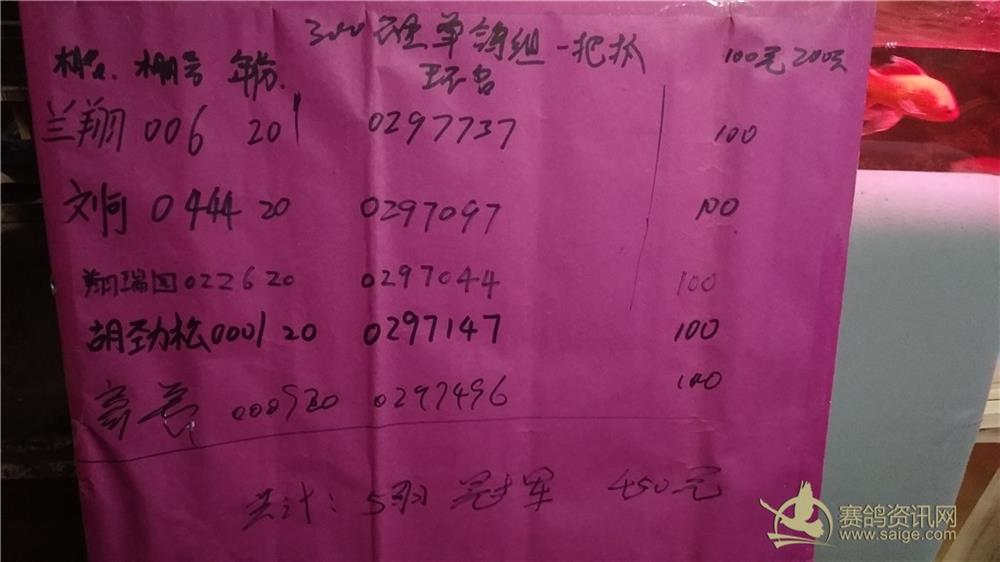 300公里单鸽组 一把抓 100元 200元
棚名 棚号 年份 环名
兰翔 006 20 0297737 100
刘向 0444 20 0297097 100
翔瑞园 0226 20 0297044 100
胡劲松 0001 20 0297147 100
0009 20 0297496 100
共计: 5羽 冠军 450元
赛鸽资讯网
www.saige.com